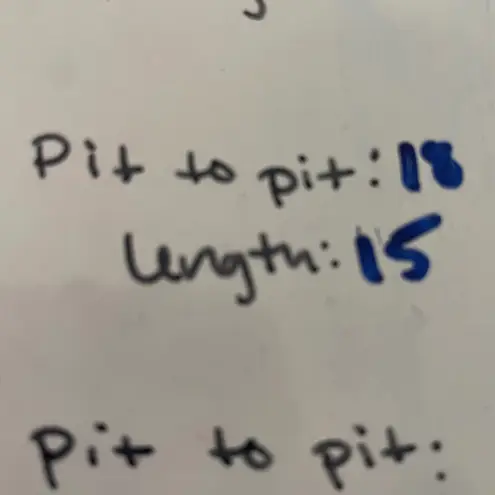 Pit to pit: 18
length: 15
Pit to pit: